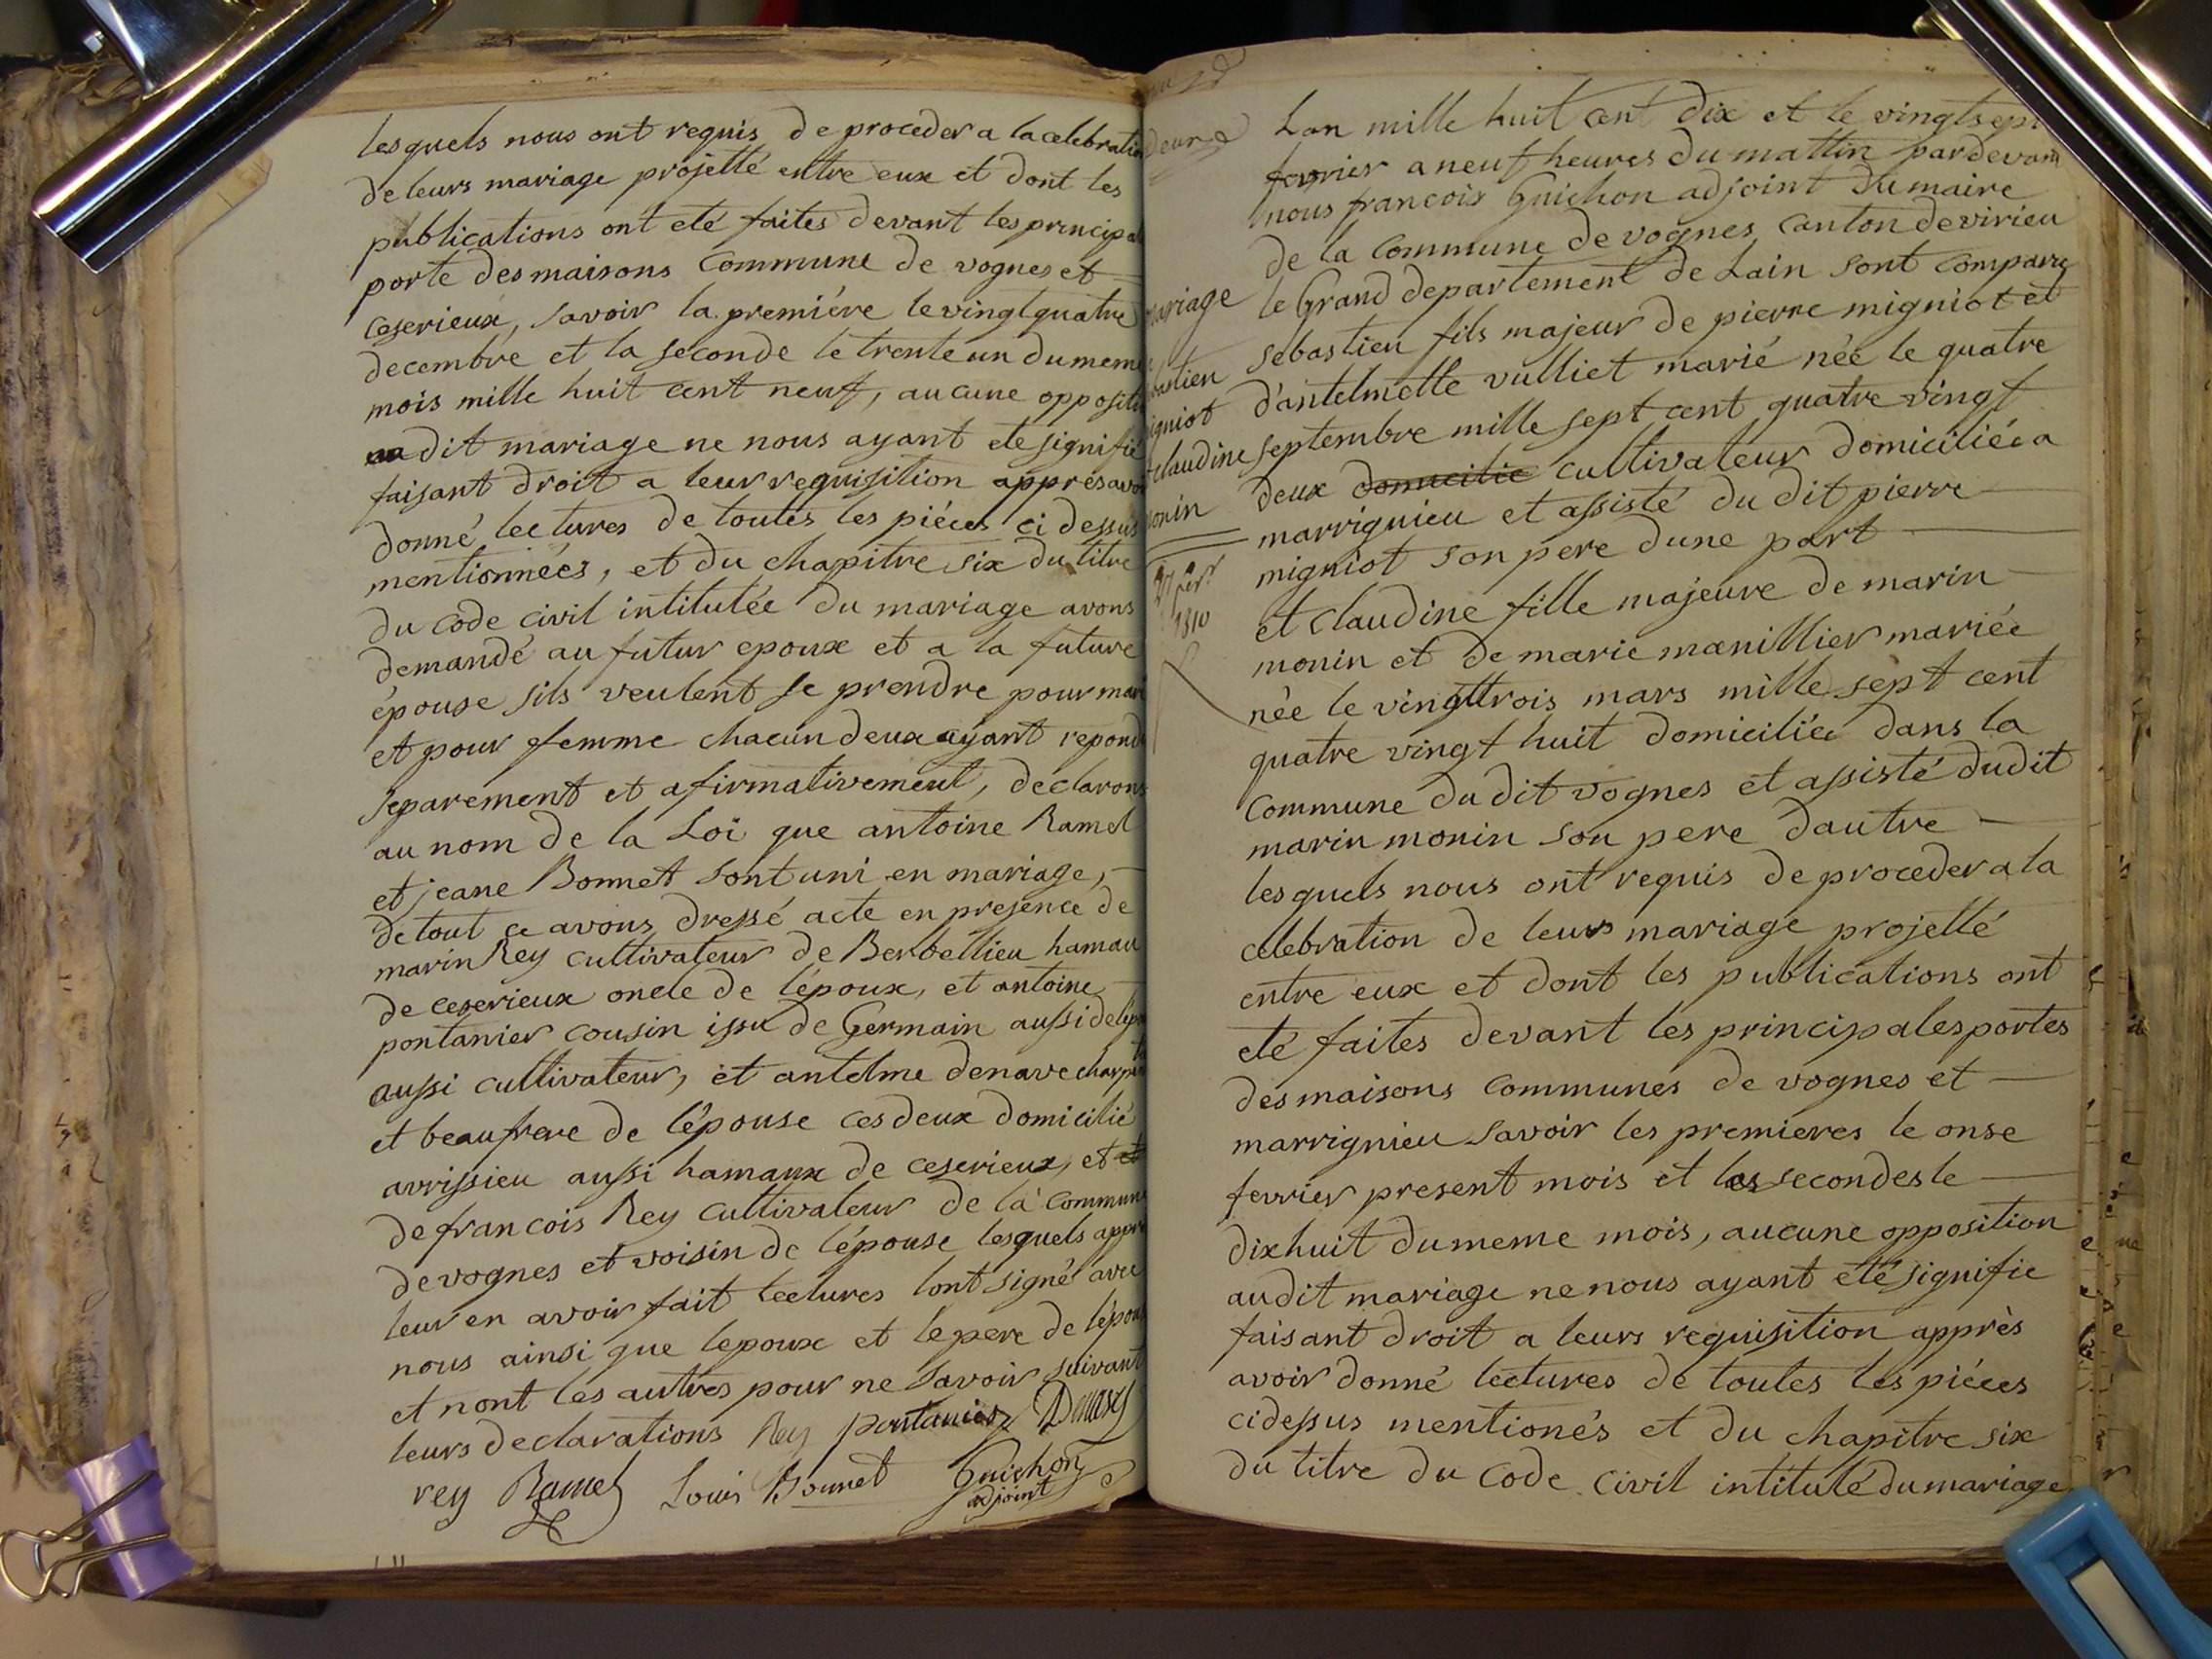 lesquels nous ont requis de proceder a la celebration
de leurs mariage projetté entre eux et dont les
publications ont eté faites devant les principal
porte des maisons Commune de vognes et
ceserieux, savoir la premiére le vingtquatre
decembre et la seconde le trente un du meme
mois mille huit cent neuf, aucune oppositi
au dit mariage ne nous ayant eté signifié
faisant droit a leur requisition apprés avoi
donné lectures de toutes les piéces ci dessus
mentionnées, et du chapitre six du titre
du code civil intitulée du mariage avons
demandé au futur epoux et a la future
épouse sils veulent se prendre pour mari
et pour femme chacun deux ayant repond
separement et afirmativement, declarons
au nom de la Loi que antoine Ramel
et jeane Bonnet sont uni en mariage,
de tout ce avons dressé acte en presence de
marin Rey cultivateur de Berbellieu hamau
de ceserieux oncle de l'époux, et antoine
pontanier cousin issu de Germain aussi de lépo
aussi cultivateur, et antelme denave charpen
et beaufrere de l'épouse ces deux domicilié
avrissieu aussi hamaux de ceserieux, et
de francois Rey cultivateur de la commune
de vognes et voisin de l'épouse lesquels appr
leur en avoir fait lectures lont signé avec
nous ainsi que lepoux et le pere de lépou
et nont les autres pour ne savoir suivant
leurs declarations Rey pontanier
rey Ramel Louis Bonnet Guichon
adjoint
mariage
bastien
igniot
claudine
onin
27 fevr
1810
Lan mille huit cent dix et le vingtsept
fevrier a neuf heures du mattin pardevant
nous francois Guichon adjoint du maire
de la Commune de vognes canton de virieu
le Grand departement de Lain sont comparu
sebastien fils majeur de pierre migniot et
d'antelmette vulliet marié née le quatre
septembre mille sept cent quatre vingt
deux domicilié cultivateur domiciliée a
marrignieu et assisté du dit pierre
migniot son pere dune part
et Claudine fille majeure de marin
monin et de marie mænillier mariée
née le vingttrois mars mille sept cent
quatre vingt huit domiciliée dans la
Commune du dit vognes et assisté dudit
marin monin son pere dautre
lesquels nous ont requis de proceder a la
celebration de leurs mariage projetté
entre eux et dont les publications ont
eté faites devant les principales portes
des maisons Communes de vognes et
marrignieu savoir les premieres le onse
fevrier present mois et les secondes le
dixhuit du meme mois, aucune opposition
audit mariage ne nous ayant eté signifie
faisant droit a leurs requisition apprès
avoir donné lectures de toutes les piéces
cidessus mentionés et du chapitre six
du titre du Code civil intitulé du mariage